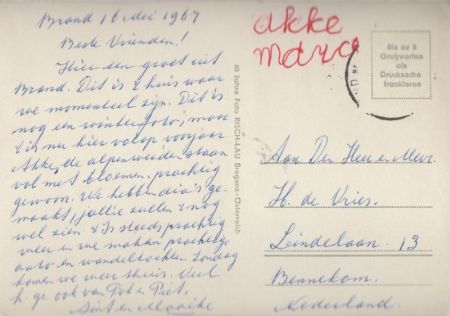 Brand 16 mei 1967
Beste Vrienden!
Hier een groet uit
Brand. Dit is 't huis waar
we momenteel zijn. Dit is
nog een winterfoto, maar
't is nu hier volop voorjaar
Akke, de alpenweiden staan
vol met bloemen. prachtig
gewoon. We hebben dia's ge-
maakt, jullie zullen 't nog
wel zien. 't Is steeds prachtig
weer en we maken prachtige
auto en wandeltochten. Zondag
komen we weer thuis. Veel
h. gr. ook van Pot en Piet.
en Maaike
akke
marco
80 Jahre Foto RISCH-LAU Bregenz - Österreich
Bis zu 5
Grußworten
als
Drucksache
frankieren
Aan Den Heer en Mevr.
H. de Vries.
Lindelaan 13
Bennekom.
Nederland.